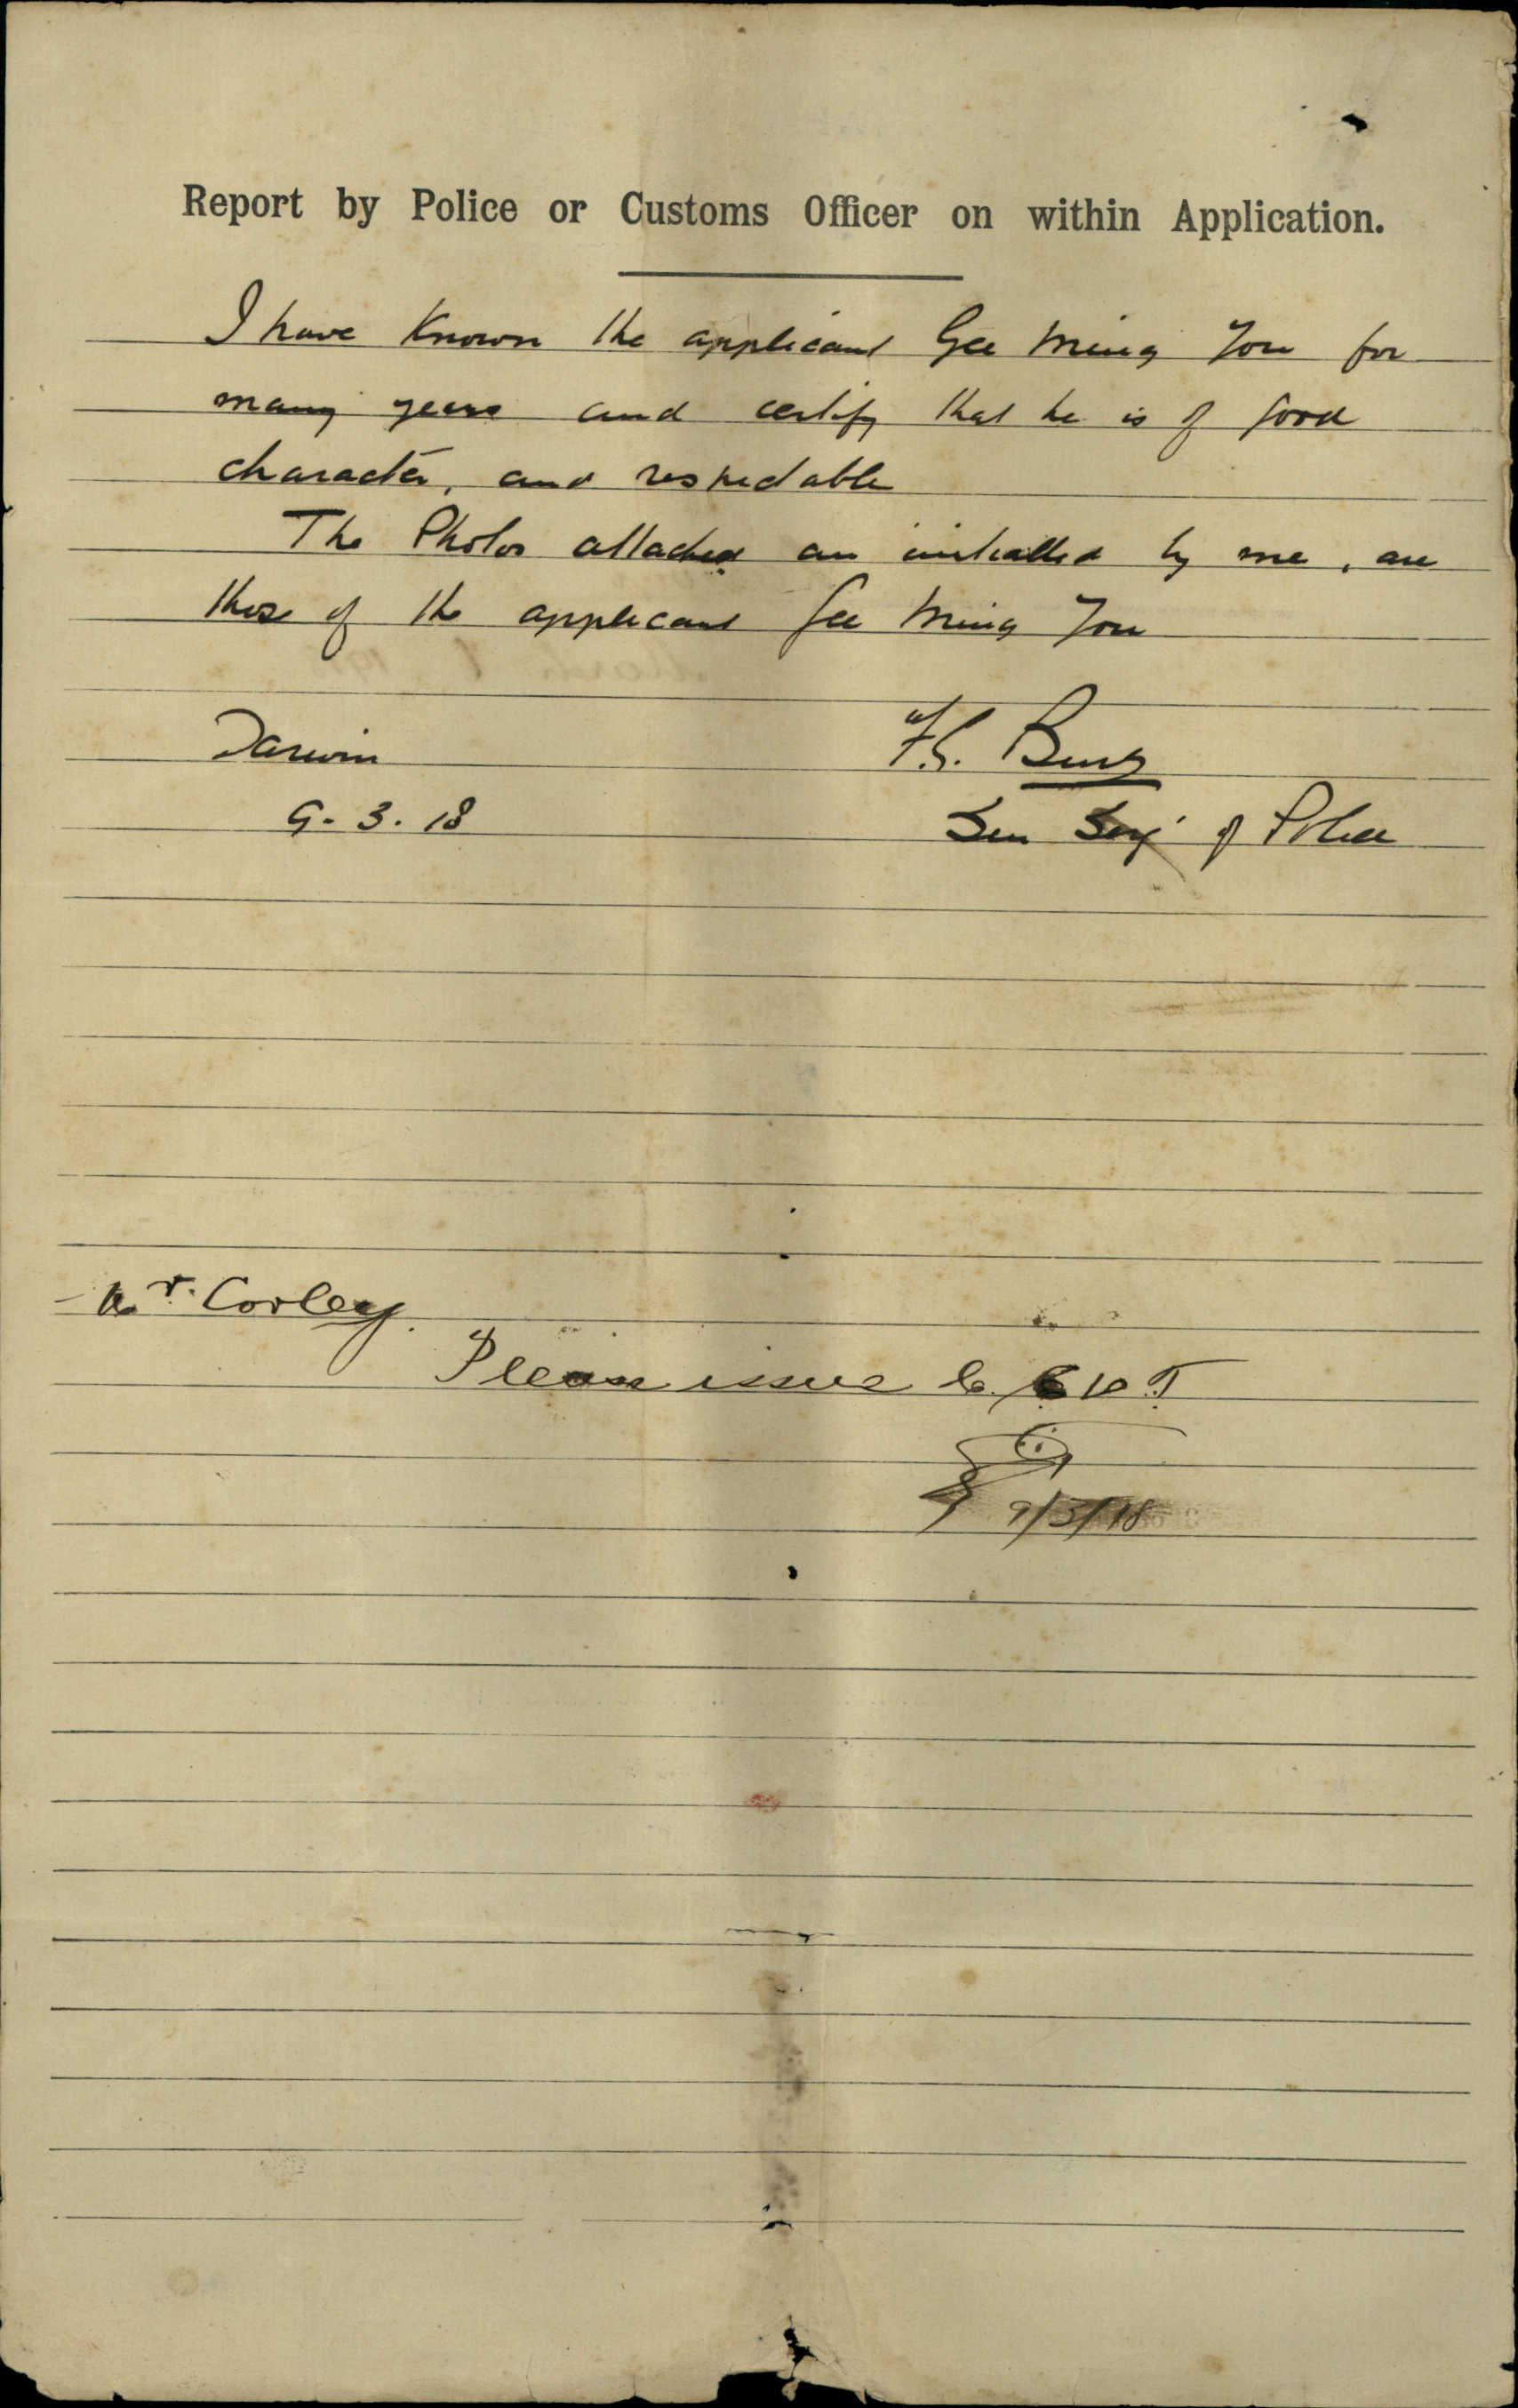 Report by Police or Customs Officer on within Application.
I have known the applicant Gee Ming You for
many years and certify that he is of good
character, and respectable
The Photos attached an initialled by me, are
those of the applicant Gee Ming You
Darwin
9. 3. 18
of Police
Mr. Corley.
Please issue C.E.D.T.
9/3/18